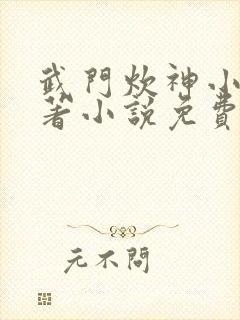 武門炊神小
著小說免費
元不問